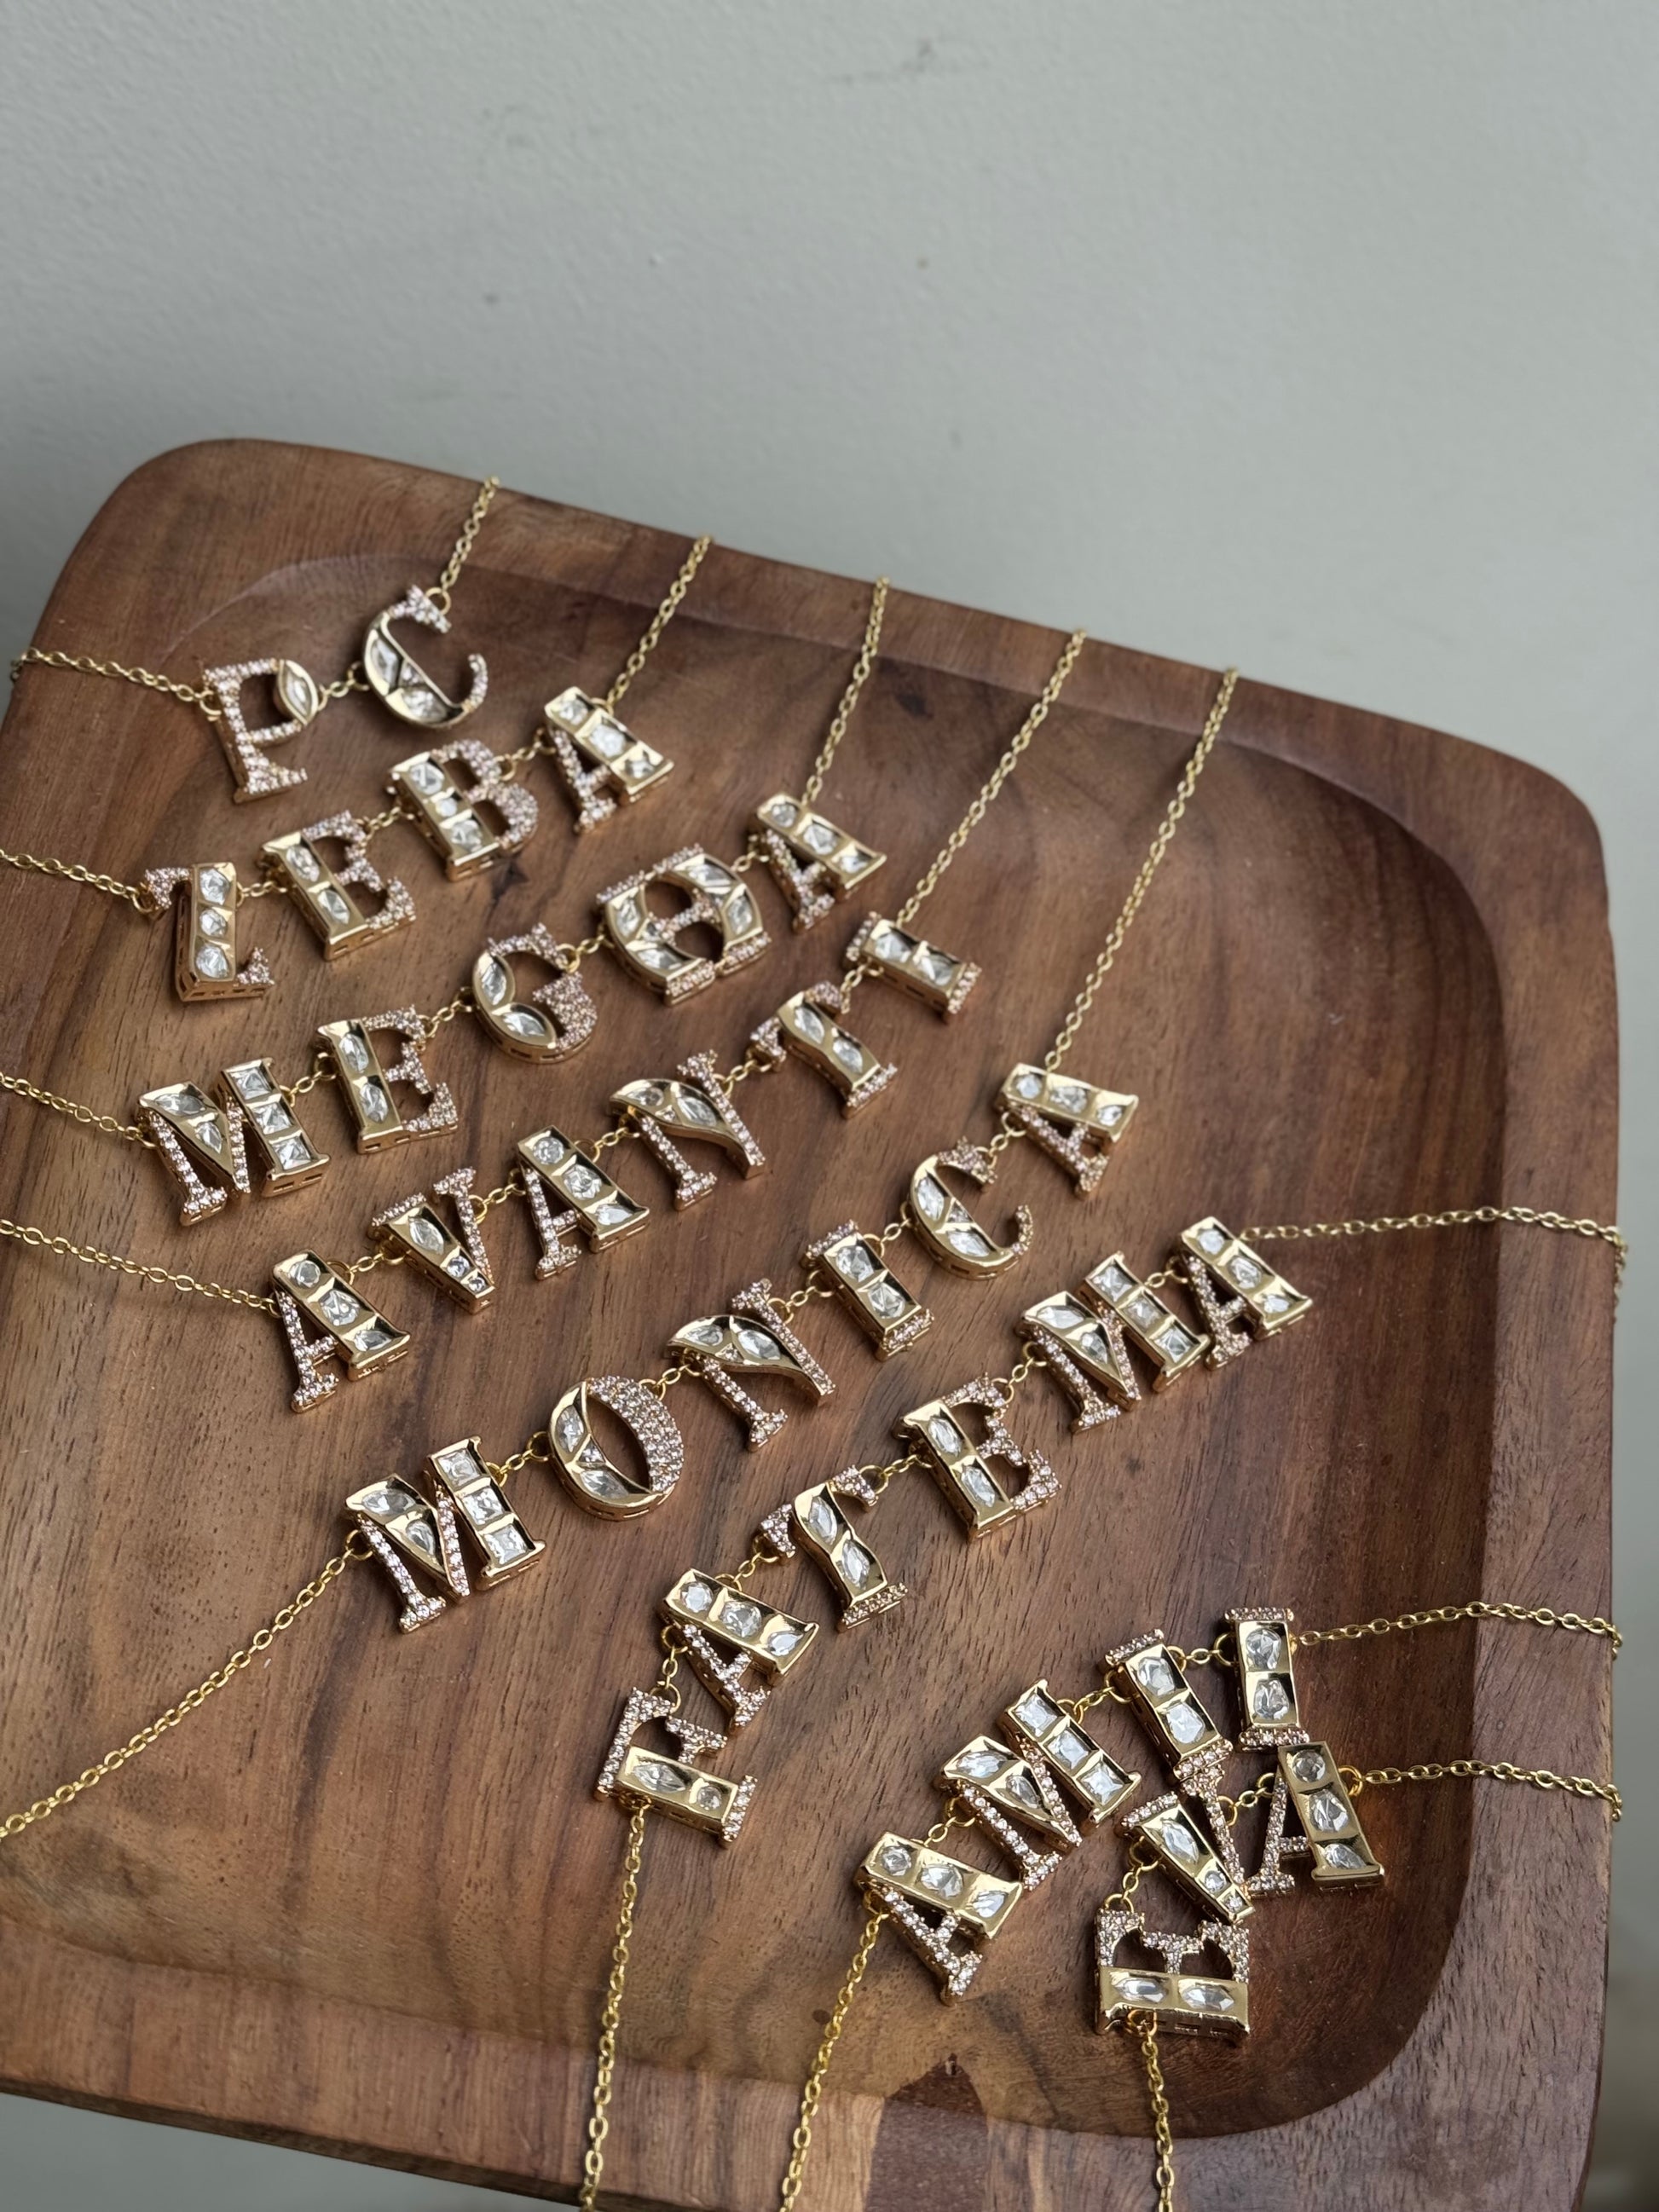 PC
ZEBA
MEGHA
AVANTI
MONICA
FATEMA
AMII
EVA